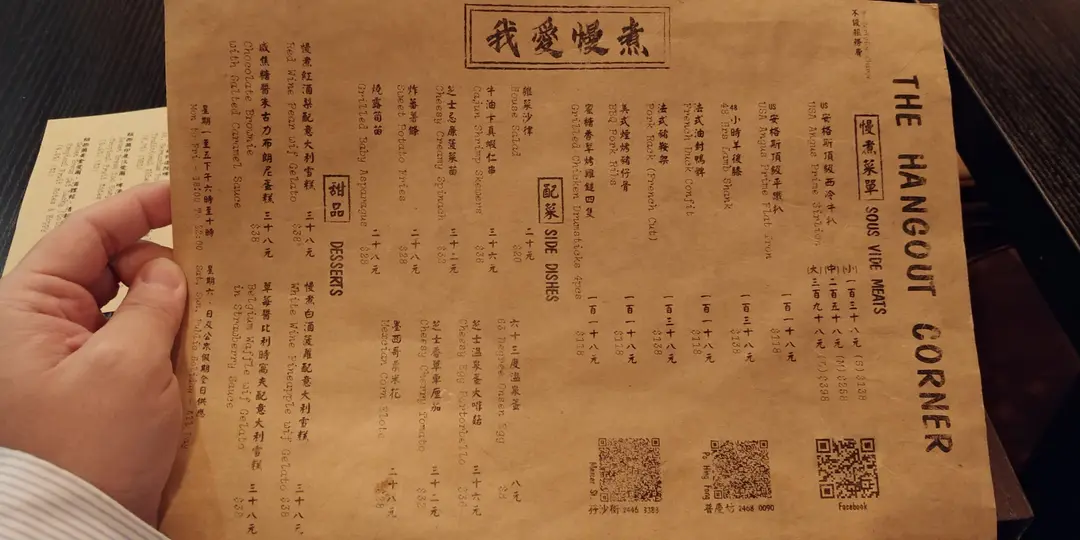 我愛慢煮
THE HANGOUT CORNER
不設服務費
慢煮菜單 SOUS VIDE MEATS
安格斯頂級西冷牛扒
USA Angus Prime Sirloin
(小)一百三十八元 (S) $138
(中)二百五十八元 (M) $258
(大)三百九十八元 (L) $398
安格斯頂級平鐵扒 一百一十八元
USA Angus Prime Flat Iron $118
48小時羊後膝 一百三十八元
48 Hrs Lamb Shank $138
法式油封鴨髀 一百一十八元
French Duck Confit $118
法式豬鞍架 一百三十八元
Pork Rack (French Cut) $138
美式煙燒豬仔骨 一百一十八元
BBQ Pork Ribs $118
蜜糖香草烤雞鎚四隻 一百一十八元
Grilled Chicken Drumsticks 4pcs $118
配菜 SIDE DISHES
雜菜沙律 二十元
House Salad $20
牛油卡真蝦仁串 三十六元
Cajun Shrimp Skewers $36
芝士忌廉菠菜苗
Cheesy Creamy Spinach
炸蕃薯條 二十八元
Sweet Potato Fries $28
燒露筍苗 二十八元
Grilled Baby Asparagus $28
六十三度溫泉蛋 八元
63 Degree Onsen Egg
芝士溫泉蛋大啡菇 三十六元
Cheesy Egg Portobello
芝士香草車厘茄
Cheesy Cherry Tomato
墨西哥粟米花 二十八元
Mexican Corn Elote
甜品 DESSERTS
慢煮紅酒梨配意大利雪糕 三十八元
Red Wine Pear wif Gelato $38
咸焦糖醬朱古力布朗尼蛋糕 三十八元
Chocolate Brownie $38
with Salted Caramel Sauce
慢煮白酒菠蘿配意大利雪糕 三十八元
White Wine Pineapple wif Gelato $38
草莓醬比利時窩夫配意大利雪糕 三十八元
Belgium Waffle wif Gelato
in Strawberry Sauce
星期一至五下午六時至十時
星期六、日及公眾假期全日供應
Facebook
Po Hing Fong
普慶坊 2468 0090
Mercer St.
孖沙街 2446 3386